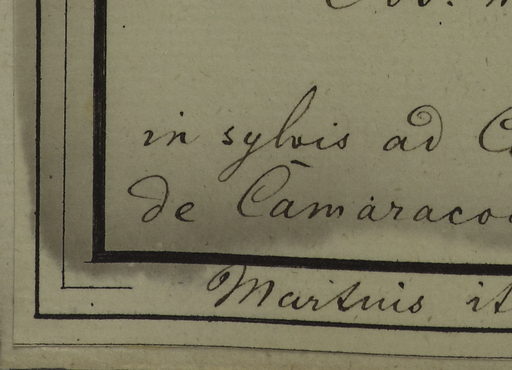 in sylvis ad
de Cāmaracoa
Martius it